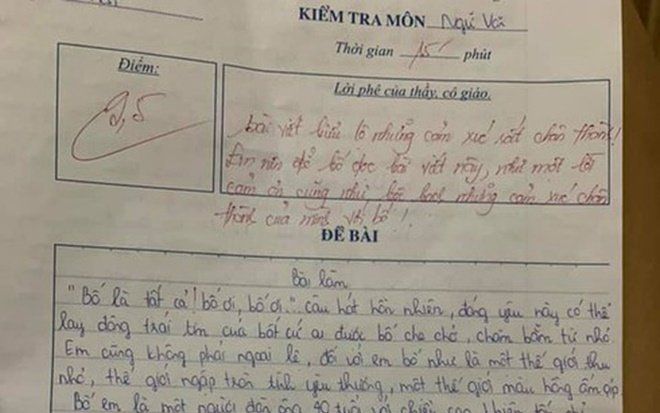 KIỂM TRA MÔN Ngữ Vă
Thời gian 15 phút
Điểm:
9,5
Lời phê của thầy, cô giáo.
bài viết biểu lộ những cảm xúc rất chân thành!
Em nên để bố đọc bài viết này, như một lời
cảm ơn cũng như, những cảm xúc chân
thành của mình với bố!
ĐỀ BÀI
Bài làm
"Bố là tất cả! bố ơi, bố ơi." câu hát hồn nhiên, đáng yêu này có thể
lay động trái tim của bất cứ ai được bố che chở, chăm bẵm từ nhỏ.
Em cũng không phải ngoại lệ, đối với em bố như là một thế giới thu
nhỏ, thế giới ngập tràn tình yêu thương, một thế giới màu hồng ấm áp
Bố em là một người đàn ông 40 tuổi với chiều cao